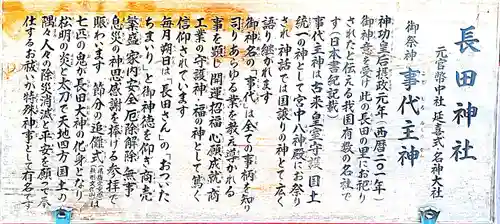 長田神社
元官幣中社 延喜式名神大社
御祭神 事代主神
神功皇后摂政元年(西暦二〇一年)
御神意を受け此の長田の里にお祀り
されたと伝える我国有数の名社で
す(日本書紀記載)
事代主神は古来皇室守護、国土
統一の神として宮中八神殿にお祭り
され神話では国譲りの神として広く
語り継がれます
御神名の「事代」は全ての事柄を知り
司りあらゆる業を教え導かれる
事を顕し開運招福 心願成就 商
工業の守護神 福の神として篤く
信仰されています
毎月朔日は「長田さん」の「おついた
ちまいり」と御神徳を仰ぎ商売
繁盛 家内安全 厄除解除 無事
息災の神恩感謝を捧げる参拝で
賑わいます 節分の追儺式
七匹の鬼が長田大神の化身となり
松明の炎と太刀で天地四方国土の
隅々人々の除災消滅と平安を願って奉
仕するお祓いが特殊神事として有名です